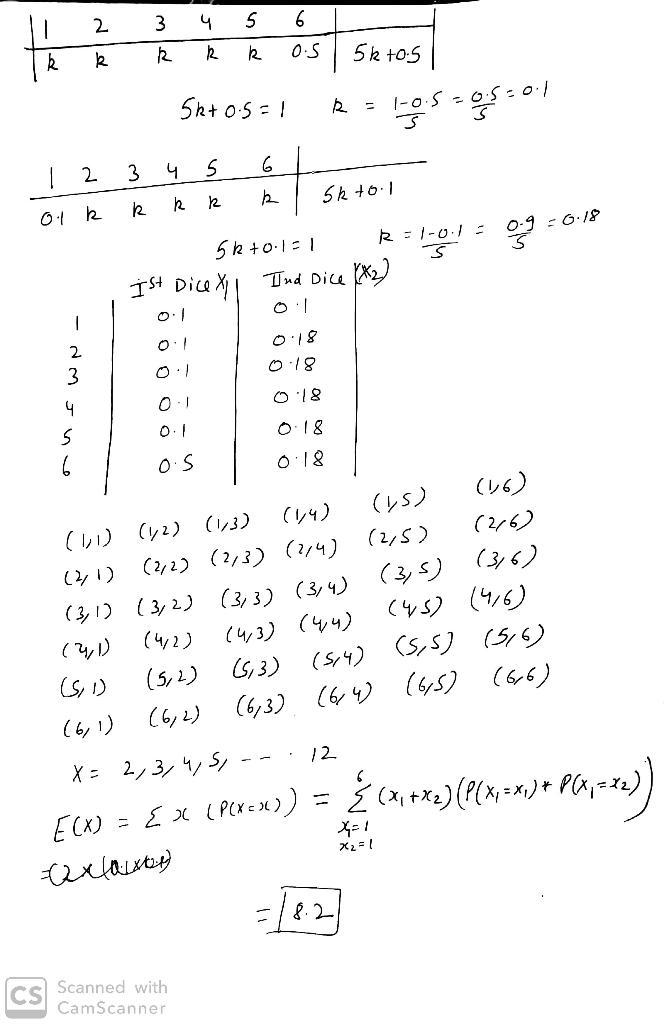 1 2 3 4 5 6
k k k k k 0.5 5k+0.5
5k+0.5=1 k = 1-0.5/5 = 0.5/5 = 0.1
1 2 3 4 5 6
0.1 k k k k k 5k+0.1
5k+0.1=1 k = 1-0.1/5 = 0.9/5 = 0.18
Ist Dice X1 IInd Dice (X2)
1 0.1 0.1
2 0.1 0.18
3 0.1 0.18
4 0.1 0.18
5 0.1 0.18
6 0.5 0.18
(1,1) (1,2) (1,3) (1,4) (1,5) (1,6)
(2,1) (2,2) (2,3) (2,4) (2,5) (2,6)
(3,1) (3,2) (3,3) (3,4) (3,5) (3,6)
(4,1) (4,2) (4,3) (4,4) (4,5) (4,6)
(5,1) (5,2) (5,3) (5,4) (5,5) (5,6)
(6,1) (6,2) (6,3) (6,4) (6,5) (6,6)
X = 2,3,4,5, -- . 12
E(X) = Σ x (P(X=x)) = Σ (x1+x2)(P(X1=x1) * P(X1=x2))
6
x1=1
x2=1
= 8.2
CS Scanned with
CamScanner